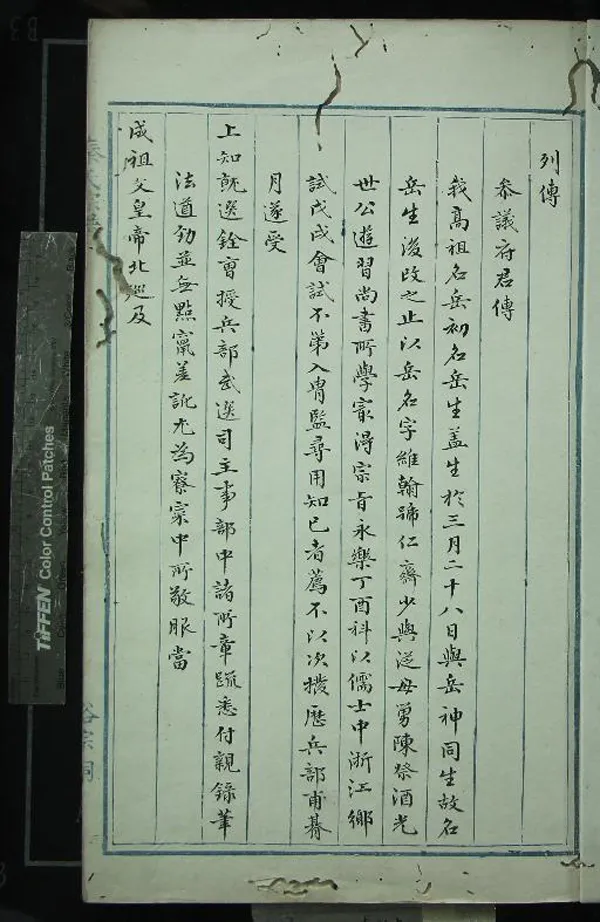 列傳
叅議府君傳
我高祖名岳初名岳生盖生於三月二十八日與岳神同生故名
岳生後改之止以岳名字維翰號仁齋少與從母舅陳祭酒光
世公遊習尚書所學寂淂宗旨永樂丁酉科以儒士中浙江鄉
試戊戌會試不第入胄監尋用知已者薦不以次擢歷兵部甫朞
月遂受
上知旣選銓曹授兵部武選司主事部中諸所章䟽悉付親錄筆
法道勁並無㸃竄差訛尤為寮寀中所敬服當
成祖文皇帝北廵及
TIFFEN Color Control Patches
谷宗祠